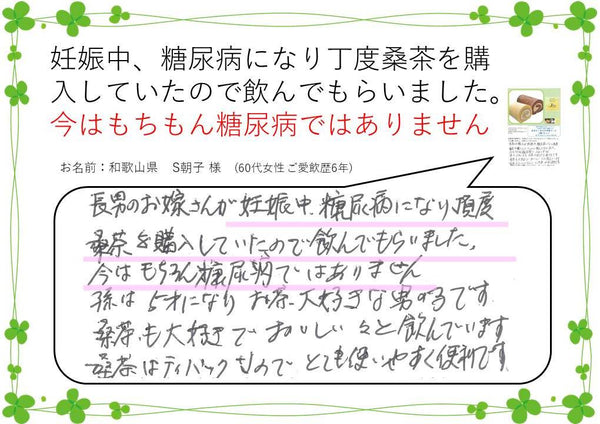 妊娠中、糖尿病になり丁度桑茶を購
入していたので飲んでもらいました。
今はもちもん糖尿病ではありません
お名前：和歌山県　S朝子 様　(60代女性ご愛飲歴6年)
長男のお嫁さんが妊娠中、糖尿病になり、頂度
桑茶を購入していたので飲んでもらいました。
今はもちろん糖尿病ではありません
孫は5才になりお茶大好きな男の子です
桑茶も大好きでおいしい々と飲んでいます
桑茶はティバックなのでとても使いやすく便利です